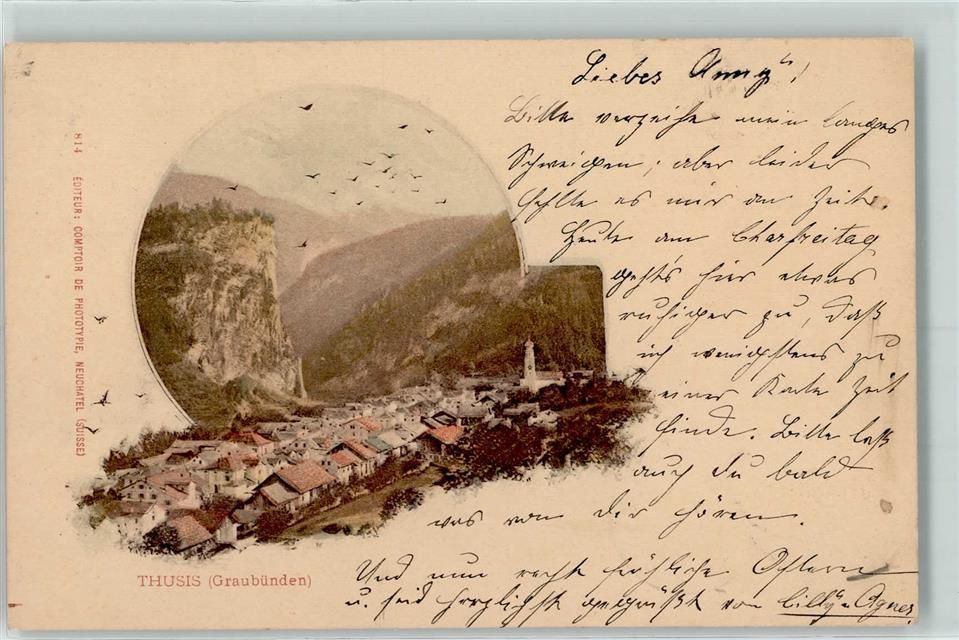 814 ÉDITEUR: COMPTOIR DE PHOTOTYPIE, NEUCHATEL (SUISSE)
Liebes Anny!
Bitte verzeihe mein langes
Schweigen; aber leider
fehlte es mir an Zeit.
Heute am Charfreitag
geht's hier etwas
ruhiger zu, daß
ich wenigstens zu
einer Karte Zeit
finde. Bitte laß
auch du bald
was von dir hören.
Und nun recht fröhliche Ostern
u. seid herzlichst gegrüßt von Cilly u. Agnes.
THUSIS (Graubünden)